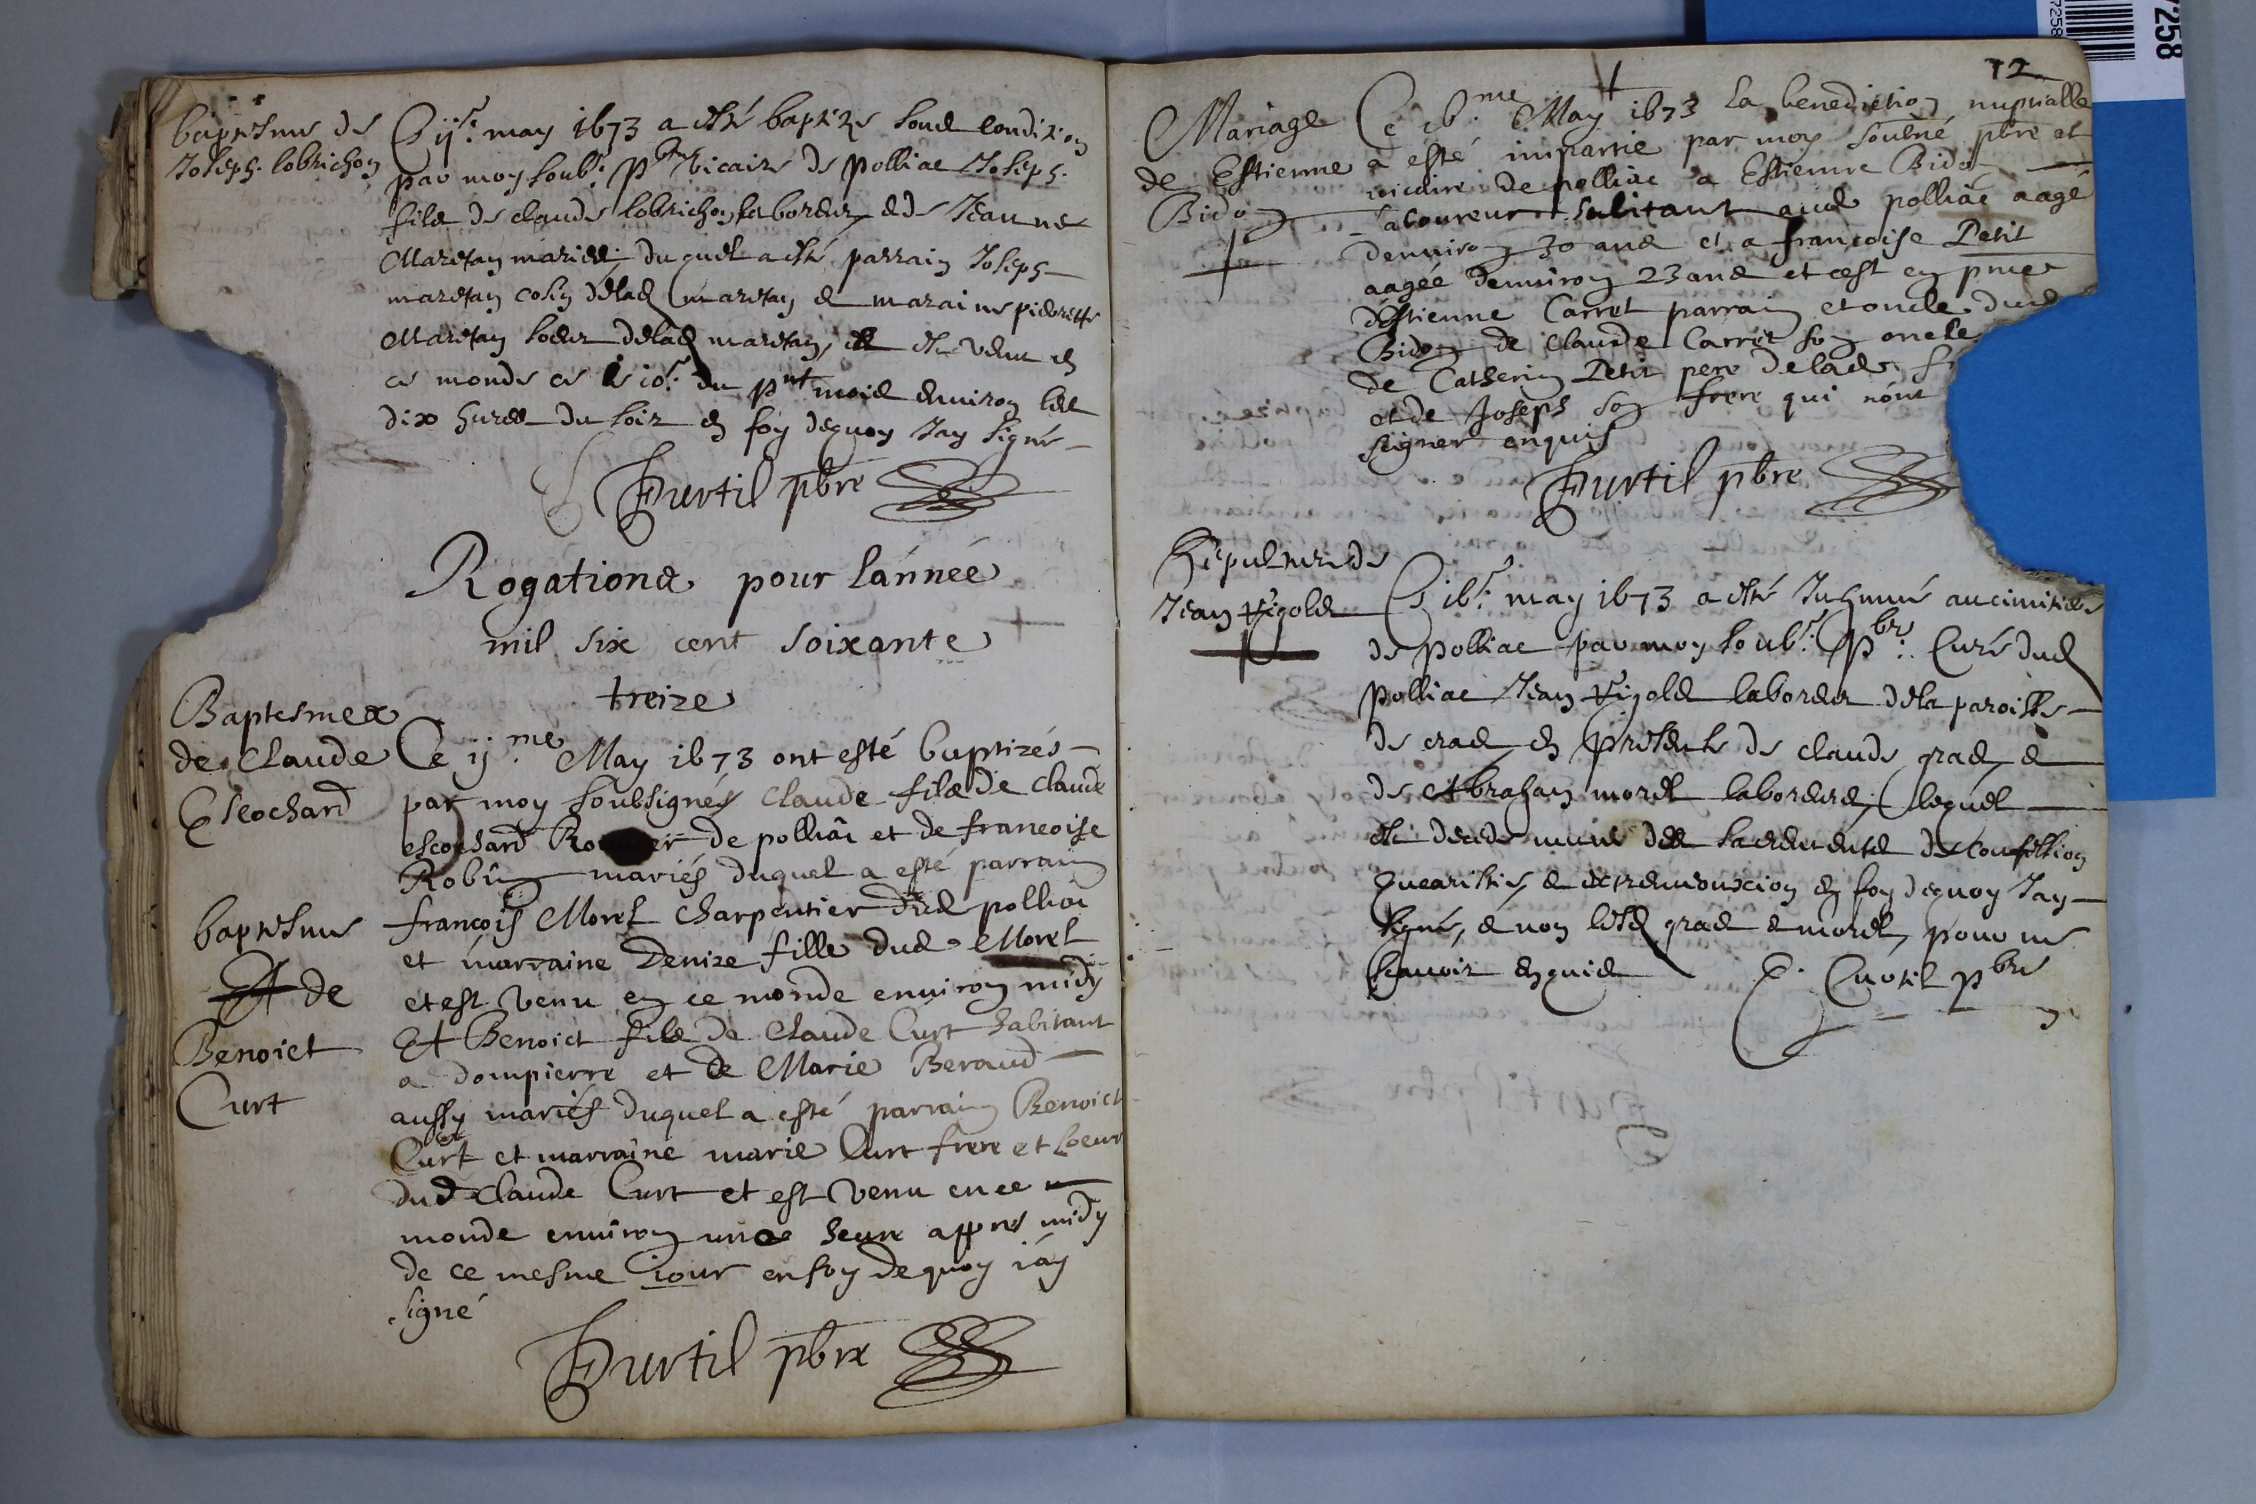 baptesme de
Joseph lobrichon
Ce ij.e may 1673 a esté baptize soub condition
par moy soub.e p.bre vicaire de polliac Joseph
filz de claude lobrichon laboreur, & de Jeanne
Maretan mariés; duquel a esté parrain Joseph
maretan cosin delad maretan & maraine pierrette
Maretan soeur delad maretan, & est venu en
ce monde ce 10.e du p.nt mois environ les
dix heures du soir en foy dequoy Jay signé
Curtil pbre
Rogations pour lánnée
mil six cent soixante
treize
Baptesmes
de Claude
Escochard
Ce ij.me May 1673 ont esté baptizés
par moy soubsignéz Claude filz de Claude
escochard de polliâc et de francoise
Robin mariés duquel a esté parrain
françois Morel charpentier dud polliac
et marraine Denize fille dud Morel
et est venu en ce monde environ midy
baptesme
Et de
Benoict
Curt
Et Benoict filz de Claude Curt habitant
a dompierre et de Marie Beraud
aussy mariés duquel a esté parrain Benoict
Curt et marraine marie Curt frere et soeur
dud Claude Curt et est venu en ce
monde environ une heure appres midy
de ce mesme jour en foy de quoy iáy
signé
Curtil pbre
12
Mariage
de Estienne
Bidon
Ce 16.me May 1673 la benediction nuptialle
a esté impartie par moy soubné pbre et
vicaire de polliac a Estienne Bidon
laboureur habitant aud polliac aagé
denviron 30 ans et a françoise Petit
aagée denviron 23 ans et cest en pnce
déstienne Carret parrain et oncle dud
Bidon de Claude Carret son oncle
de Catherin Petit pere delad f
et de Joseph son frere qui nónt
signer enquis
Curtil pbre
Sepulture de
Jean Vigold
Ce 16.e may 1673 a esté Inhumé au cimitiere
de polliac par moy soub.e p.bre Curé dud
polliac Jean Vigold laboreur dela paroisse
de cras, en presence de claude gras, &
de Abraham morel laboreurs, lequel
est decedé munis des sacrements de confession
& extremonction en foy dequoy Jay
signé, & non lesd gras & morel, pour ne
scavoir enquis
C. Curtil pbre